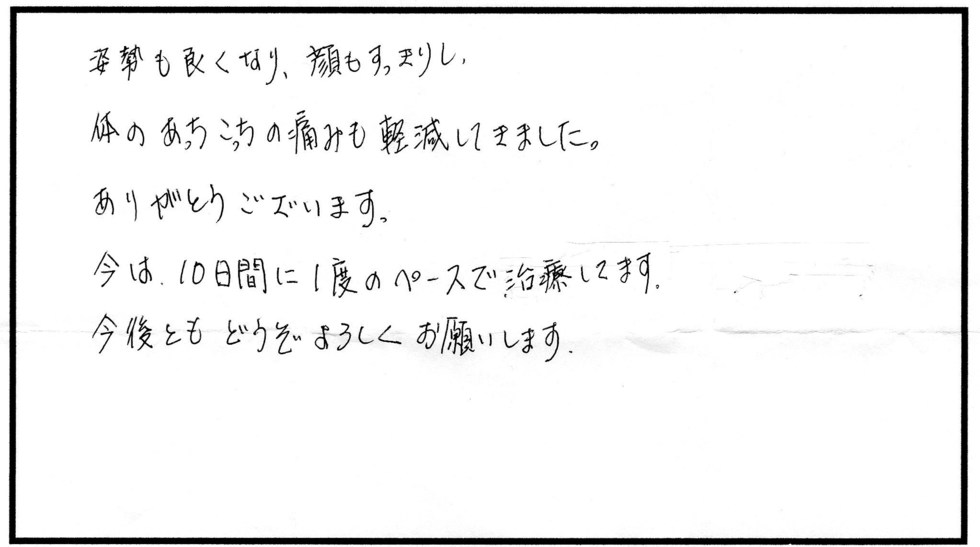 姿勢も良くなり、顔もすっきりし、
体のあっちこっちの痛みも軽減してきました。
ありがとうございます。
今は、10日間に1度のペースで治療してます。
今後ともどうぞよろしくお願いします。